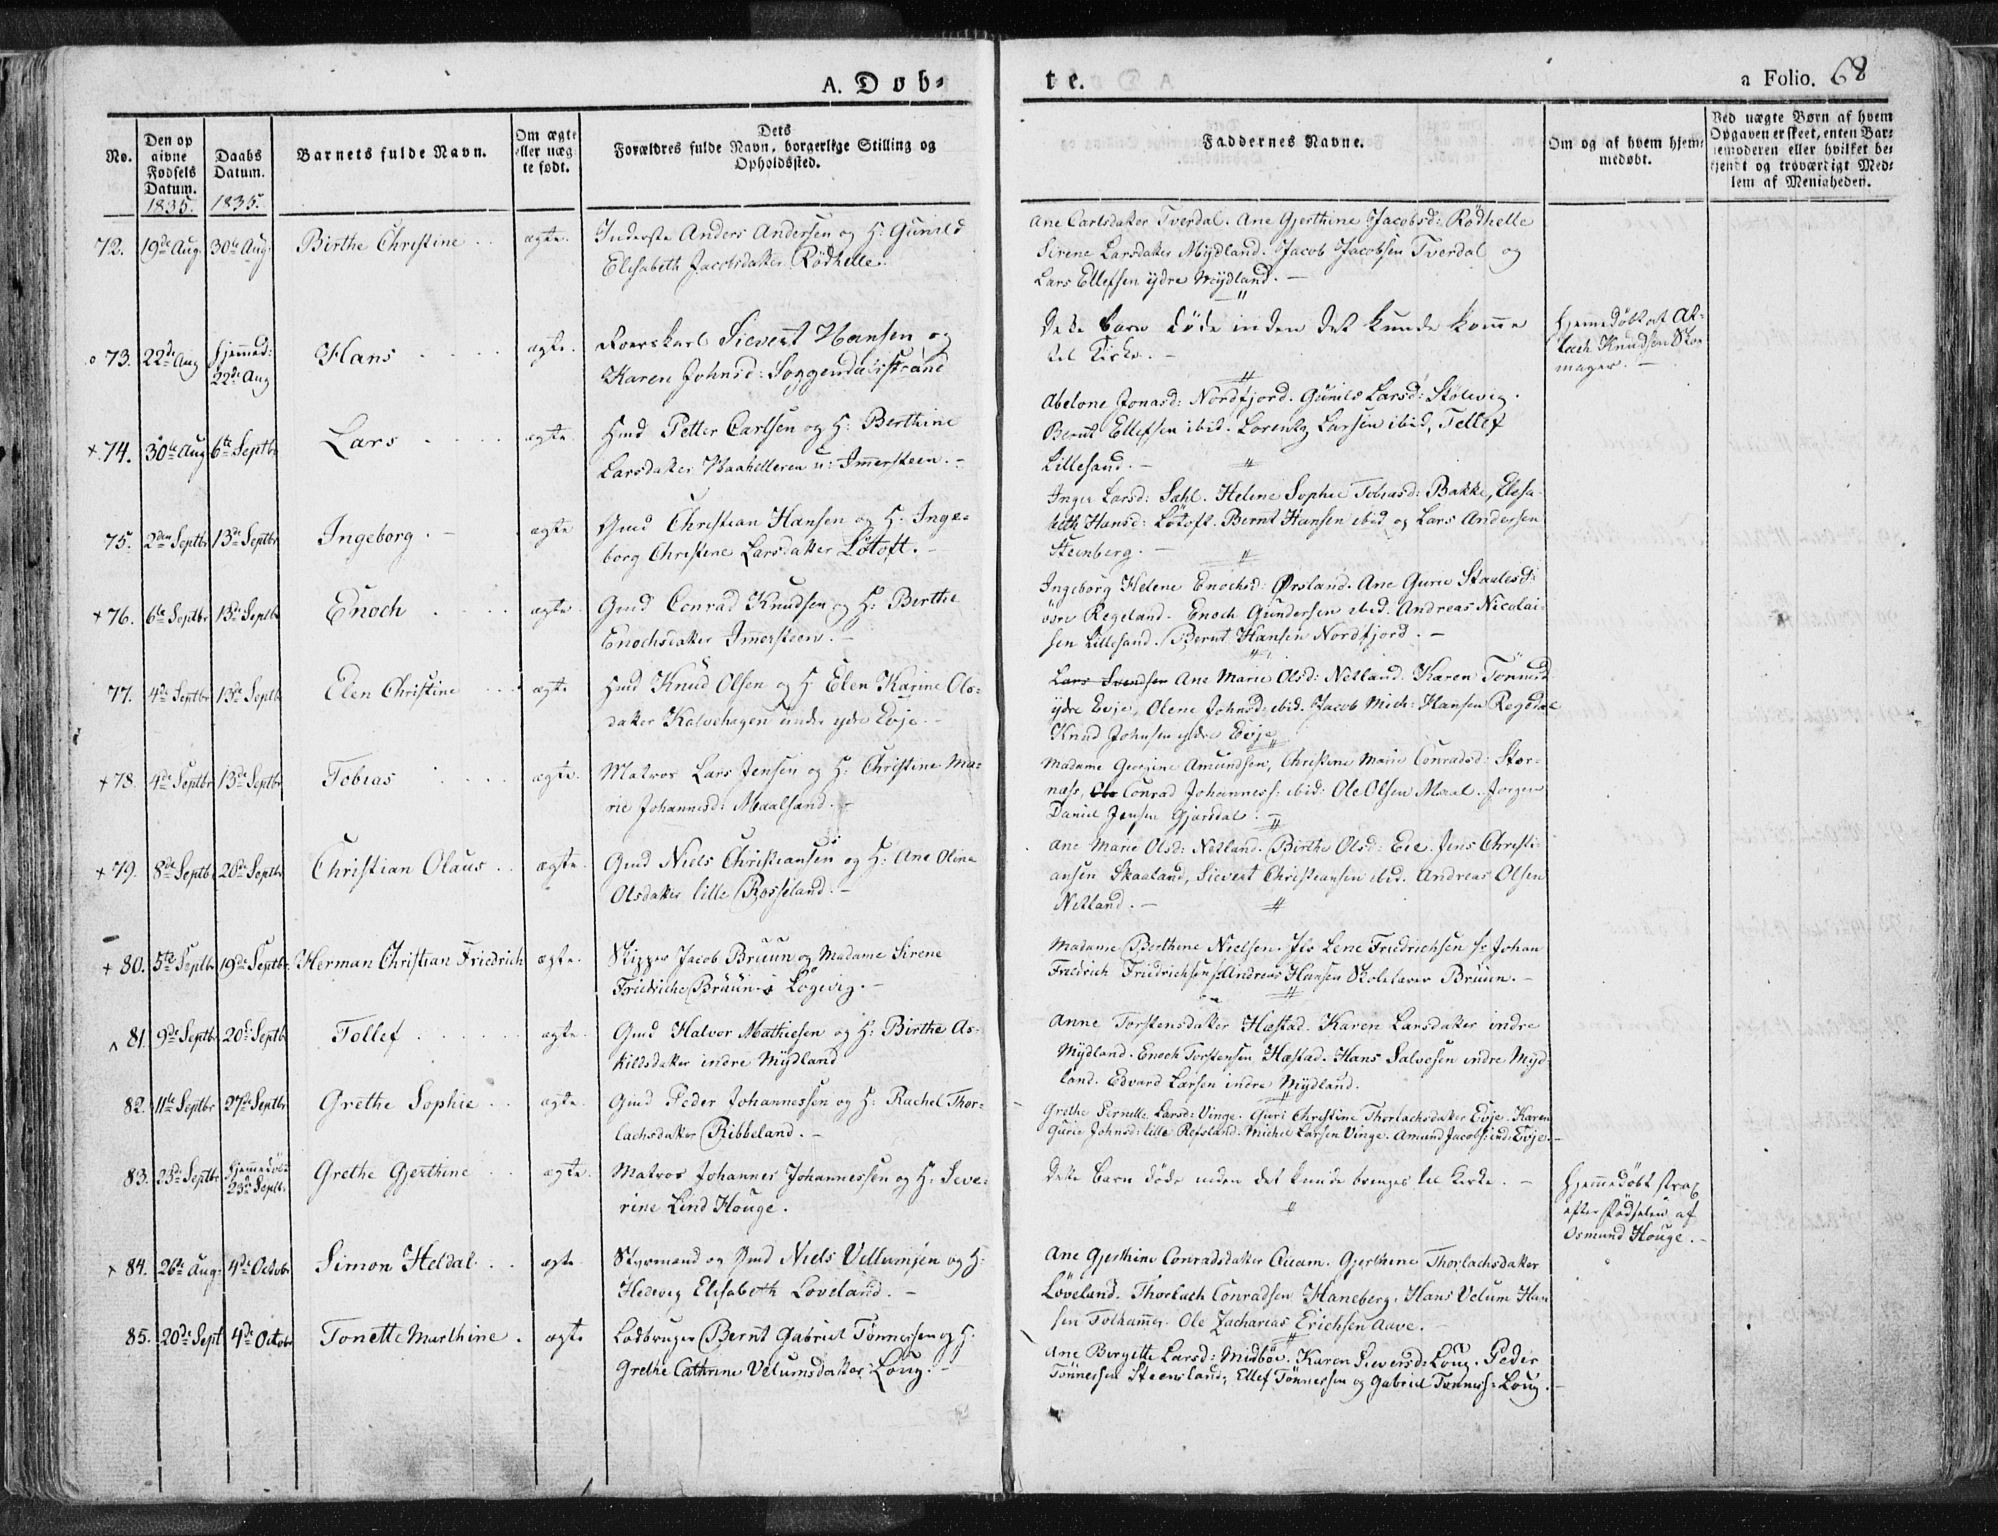 A. Døb-
te.
a Folio. 68
No.
Den op
givne
Fødsels
Datum.
1835.
Daabs
Datum.
1835.
Barnets fulde Navn.
Om ægte
eller uæg
te født.
Dets
Forældres fulde Navn, borgerlige Stilling og
Opholdssted.
Faddernes Navne.
Om og af hvem hjem-
medøbt.
Ved uægte Børn af hvem
Opgaven er skeet, enten Bar-
nemoderen eller hvilket be-
kjendt og troværdigt Med-
lem af Menigheden.
72. 19de Aug. 30te Aug. Birthe Christine ægte. Inderste Anders Andersen og H: Gunild
Elisabeth Jacobsdatter Rødhelle.
Ane Carlsdatter Tverdal. Ane Gjerthine Jacobsd: Rødhelle
Sirene Larsdatter Mydland. Jacob Jacobsen Tverdal og
Lars Ellefsen ydre Mydland. -
73. 22de Aug hjemmed: 22de Aug Hans ægte. Sievert Hansen og
Karen Johnsd: Soggendalsstrand
Dette Barn døde inden det kunde komme
til Kirke. -
hjemmedøbt at
Knudsen Sko
mager. -
+ 74. 30te Aug 6te Septbr Lars ægte. Gmd Petter Carlsen og H: Berthine
Larsdatter Haahelleren u: Immersteen. -
Abelone Jonasd: Nordfjord. Gunild Larsd: Stølevig.
Bernt Ellefsen ibid. Lorentz Larsen ibid, Tellef
Lillesand. -
75. 2den Septbr 13de Septbr Ingeborg. - ægte Gmd Christian Hansen og H: Inge-
borg Christine Larsdatter Løtoft. -
Inger Larsd: Sæhl. Helene Sophie Tobiasd: Bakke, Elisa-
beth Hansd: Løtoft. Bernt Hansen ibid og Lars Andersen
Steinberg. -
+ 76. 6te Septbr 13de Septbr Enoch ægte. Gmd Conrad Knudsen og H: Berthe
Enochsdatter Immersteen. -
Ingeborg Helene Enochsd: Ørsland. Ane Gurie Staalesd:
øvre Regeland. Enoch Gundersen ibid. Andreas Nicolai-
sen Lillesand. Bernt Hansen Nordfjord. -
77. 4de Septbr 13de Septbr Elen Christine ægte Hmd Knud Olsen og H Elen Karine Ols-
datter Kalvehagen under ydre Evje. -
Lars Svendsen Ane Marie Olsd: Netland. Karen Tønnesd
ydre Evje, Olene Johnsd: ibid. Jacob Mich: Hansen Regedal
Knud Johnsen ydre Evje
+ 78. 4de Septbr 13de Septbr Tobias ægte. Matros Lars Jensen og H: Christine Ma-
rie Johannesd: Maalsand. -
Madame Georgine Amundsen, Christine Marie Conradsd: Stor-
næs, Ole Conrad Johanness: ibid: Ole Olsen Maal. Jørgen
Daniel Jensen Gjærsdal.
+ 79. 8de Septbr 20de Septbr Christian Olaus ægte. Gmd Niels Christiansen og H: Ane Oline
Olsdatter lille Rosseland. -
Ane Marie Olsd: Netland. Birthe Olsd: Eie. Jens Christi-
ansen Skaaland, Sievert Christiansen ibid. Andreas Olsen
Netland. -
+ 80. 5te Septbr 19de Septbr. Herman Christian Friedrich ægte. Skipper Jacob Bruun og Madame Sirene
Friedriche Bruun i Løgevig. -
Madame Berthine Nielsen. Jfr Lene Friedrichsen Hr Johan
Friedrich Friedrichsen. Andreas Hansen Skolelærer Bruun. -
81. 9de Septbr 20de Septbr Tollef ægte. Gmd Halvor Mathiesen og H: Birthe As-
kildsdatter indre Mydland
Anne Torstensdatter Hæstad. Karen Larsdatter indre
Mydland. Enoch Torstensen Hæstad. Hans Salvesen indre Myd
land. Edvard Larsen indre Mydland.
82. 11te Septbr 27de Septbr Grethe Sophie ægte. Gmd Peder Johannessen og H: Rachel Thor-
lachsdatter Ribbeland. -
Grethe Pernille Larsd: Vinge. Guri Christine Thorlachsdatter Evje. Karen
Gurie Johnsd: lille Refsland. Michel Larsen Vinge. Amund Jacobs: ind: Evje. -
83. 23de Septbr hjemmedøbt 23de Septbr. Grethe Gjerthine ægte. Matros Johannes Johannessen og H: Seve-
rine Lind Houge.
Dette Barn døde inden det kunde bringes til Kirke. -
hjemmedøbt strax
efter Fødselen af
Osmund Houge. -
+ 84. 26de Aug. 4de Octobr Simon Heldal ægte Styrmand og Gmd Niels Vellumsen og H:
Hedevig Elisabeth Loveland. -
Ane Gjerthine Conradsdatter Quam. Gjerthine Thorlachsdatter
Løveland. Thorlach Conradsen Haneberg. Hans Velum Han
sen Tothammer. Ole Zacharias Erichsen Aave. -
85. 20de Sept 4de Octobr Tonette Marthine. ægte Ladbruger Bernt Gabriel Tønnessen og H:
Grethe Cathrine Velumsdatter Loug. -
Ane Birgitte Larsd: Midbøe. Karen Sieversd: Loug. Peder
Tønnessen Steensland, Ellef Tønnessen og Gabriel Tønness: Loug. -